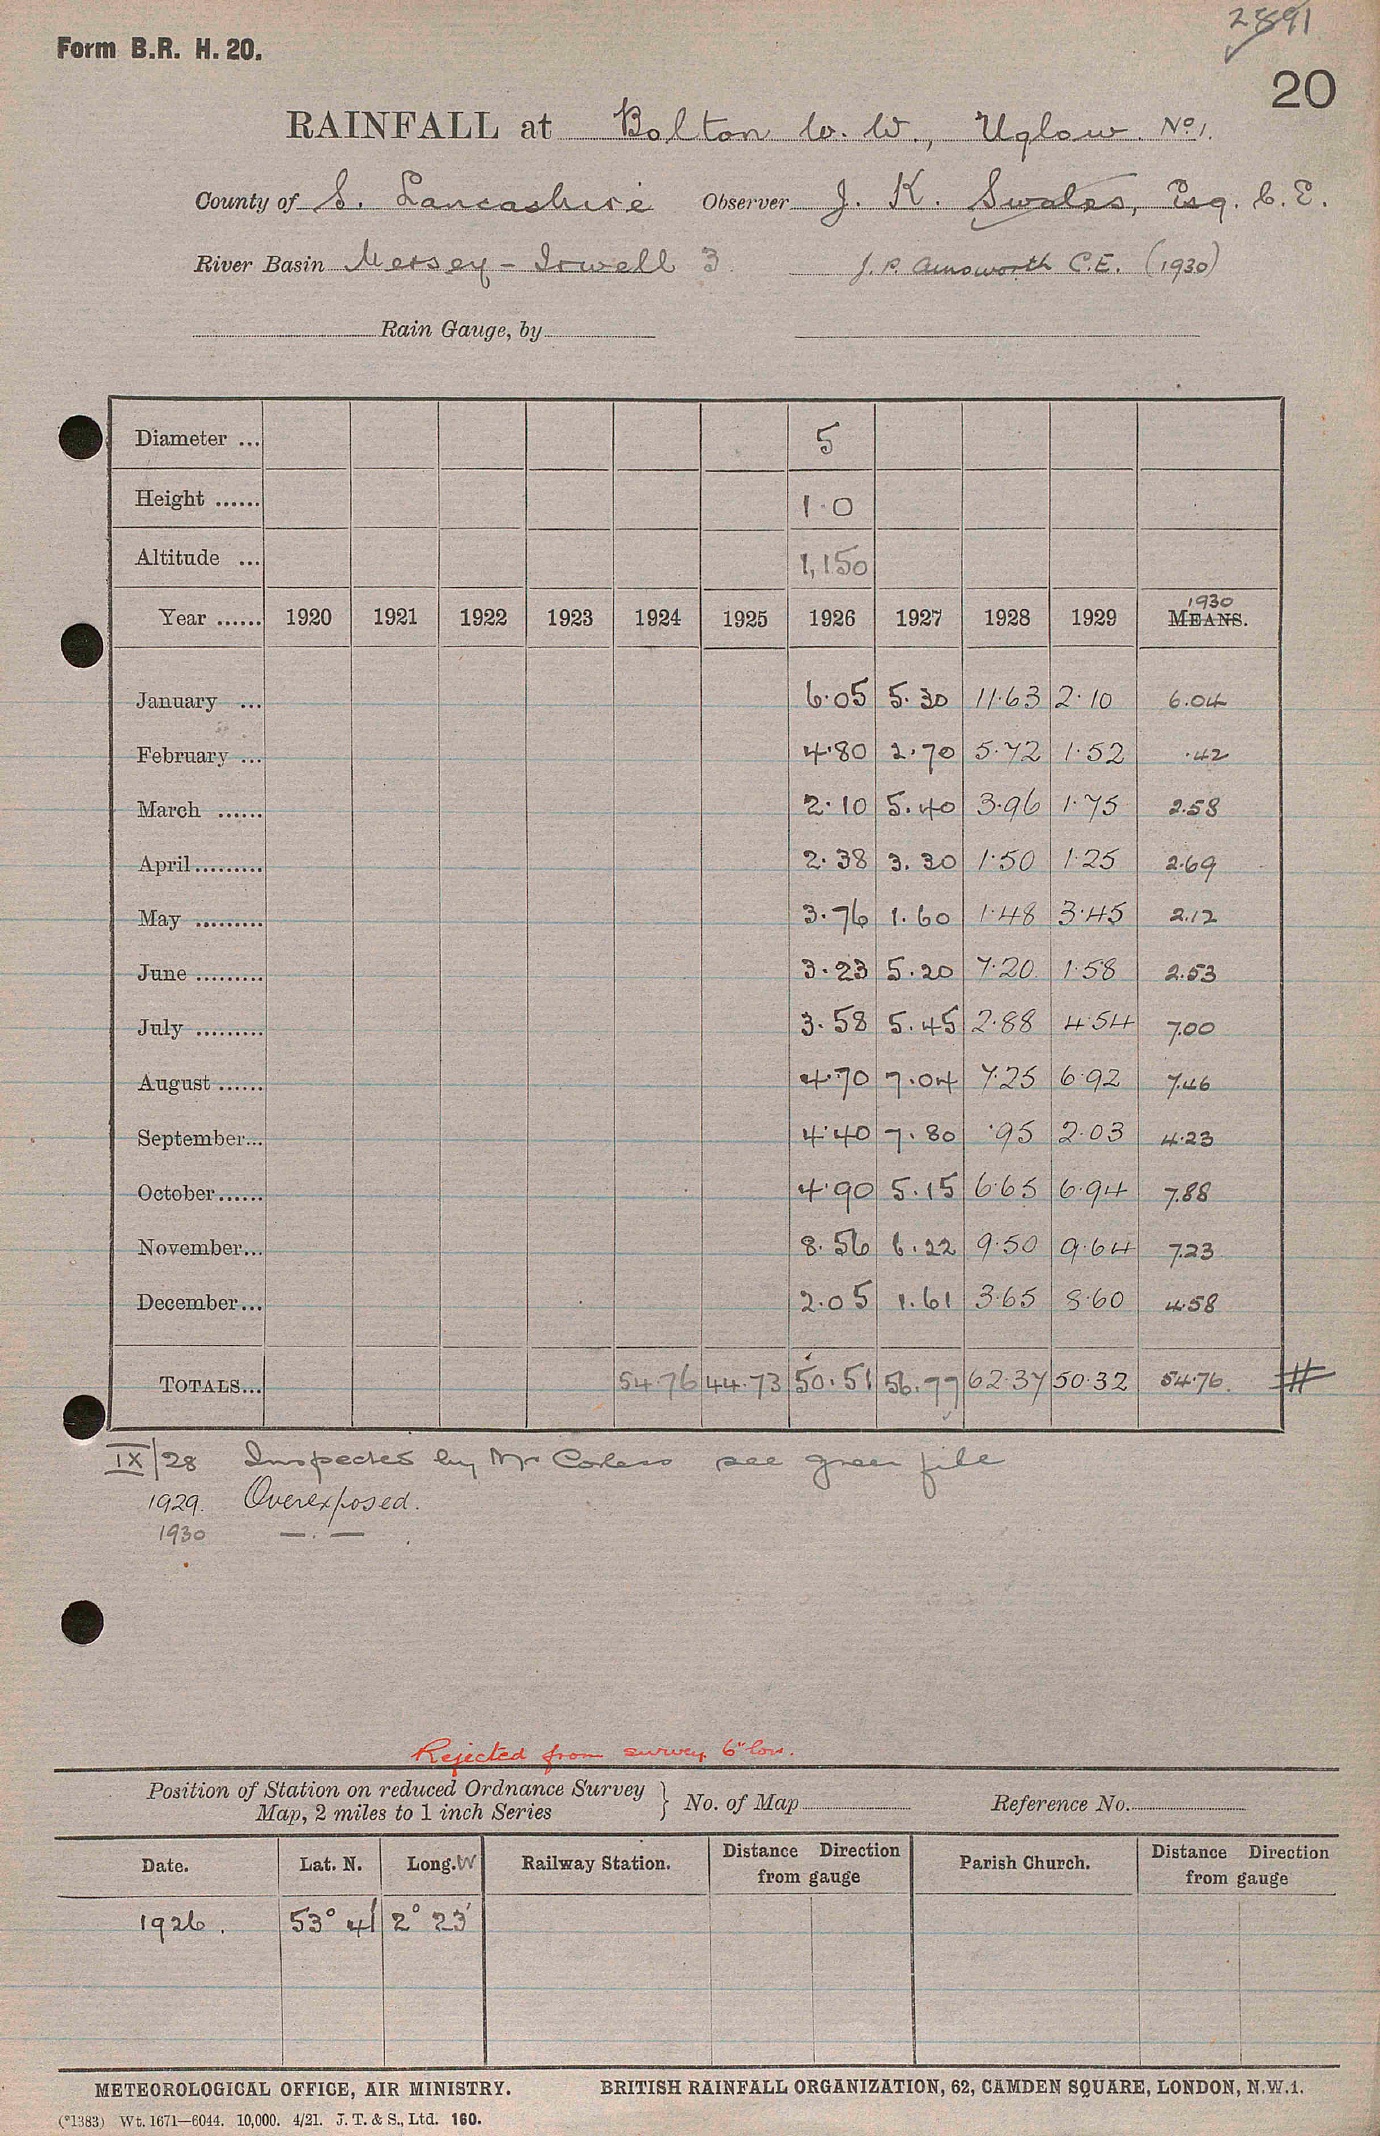 2891
Form B.R. H. 20.
20
RAINFALL at Bolton W. W., Uglow. No 1.
County of S. Lancashire Observer J. K. Swales, Esq. C. E.
River Basin Mersey - Irwell 3 J. P. Ainsworth C.E. (1930)
Rain Gauge, by
Diameter ... 5
Height ...... 1·0
Altitude ... 1,150
1930
Year ...... 1920 1921 1922 1923 1924 1925 1926 1927 1928 1929 MEANS.
January ... 6·05 5·30 11·63 2·10 6·04
February ... 4·80 2·70 5·72 1·52 ·42
March ...... 2·10 5·40 3·96 1·75 2·58
April ......... 2·38 3·30 1·50 1·25 2·69
May ......... 3·76 1·60 1·48 3·45 2·12
June ......... 3·23 5·20 7·20 1·58 2·53
July ......... 3·58 5·45 2·88 4·54 7·00
August ...... 4·70 7·04 7·25 6·92 7·46
September... 4·40 7·80 ·95 2·03 4·23
October ...... 4·90 5·15 6·65 6·94 7·88
November... 8·56 6·22 9·50 9·64 7·23
December... 2·05 1·61 3·65 8·60 4·58
TOTALS... 54·76 44·73 50·51 56·77 62·37 50·32 54·76 #
IX/28 Inspected by Mr Corless see green file
1929. Overexposed.
1930 — . —
Rejected from survey. 6" low.
Position of Station on reduced Ordnance Survey
Map, 2 miles to 1 inch Series } No. of Map Reference No.
Date. Lat. N. Long. W Railway Station. Distance Direction from gauge Parish Church. Distance Direction from gauge
1926. 53° 41' 2° 23'
METEOROLOGICAL OFFICE, AIR MINISTRY. BRITISH RAINFALL ORGANIZATION, 62, CAMDEN SQUARE, LONDON, N.W.1.
(*1383) Wt. 1671—6044. 10,000. 4/21. J. T. & S., Ltd. 160.